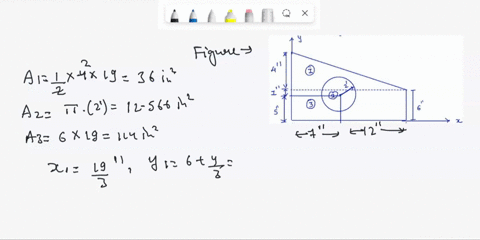 Figure →
A1 = 1/2 × 4² × 19 = 36 in²
A2 = π·(2²) = 12-566 in²
A3 = 6 × 19 = 114 in²
x1 = 19/3", y1 = 6 + 4/3 =
y
4"
1
1"
2
2"
5"
3
6"
x
7"
12"